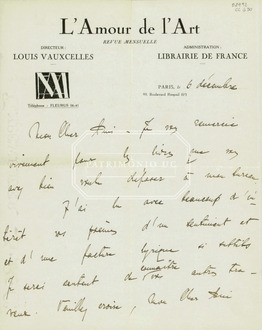 L'Amour de l'Art
REVUE MENSUELLE
DIRECTEUR :
LOUIS VAUXCELLES
ADMINISTRATION :
LIBRAIRIE DE FRANCE
Téléphone : FLEURUS
PARIS, le 6 décembre
Mon Cher Ami - Je vous remercie
vivement pour les livres que vous
avez bien voulu déposer à mon bureau
J'ai lu avec beaucoup d'in
térêt vos poèmes d'un sentiment et
et d'une facture lyrique si subtils
Je serais content de connaître vos autres tra-
vaux. Veuillez croire, Mon Cher Ami
PATRIMONIO UC